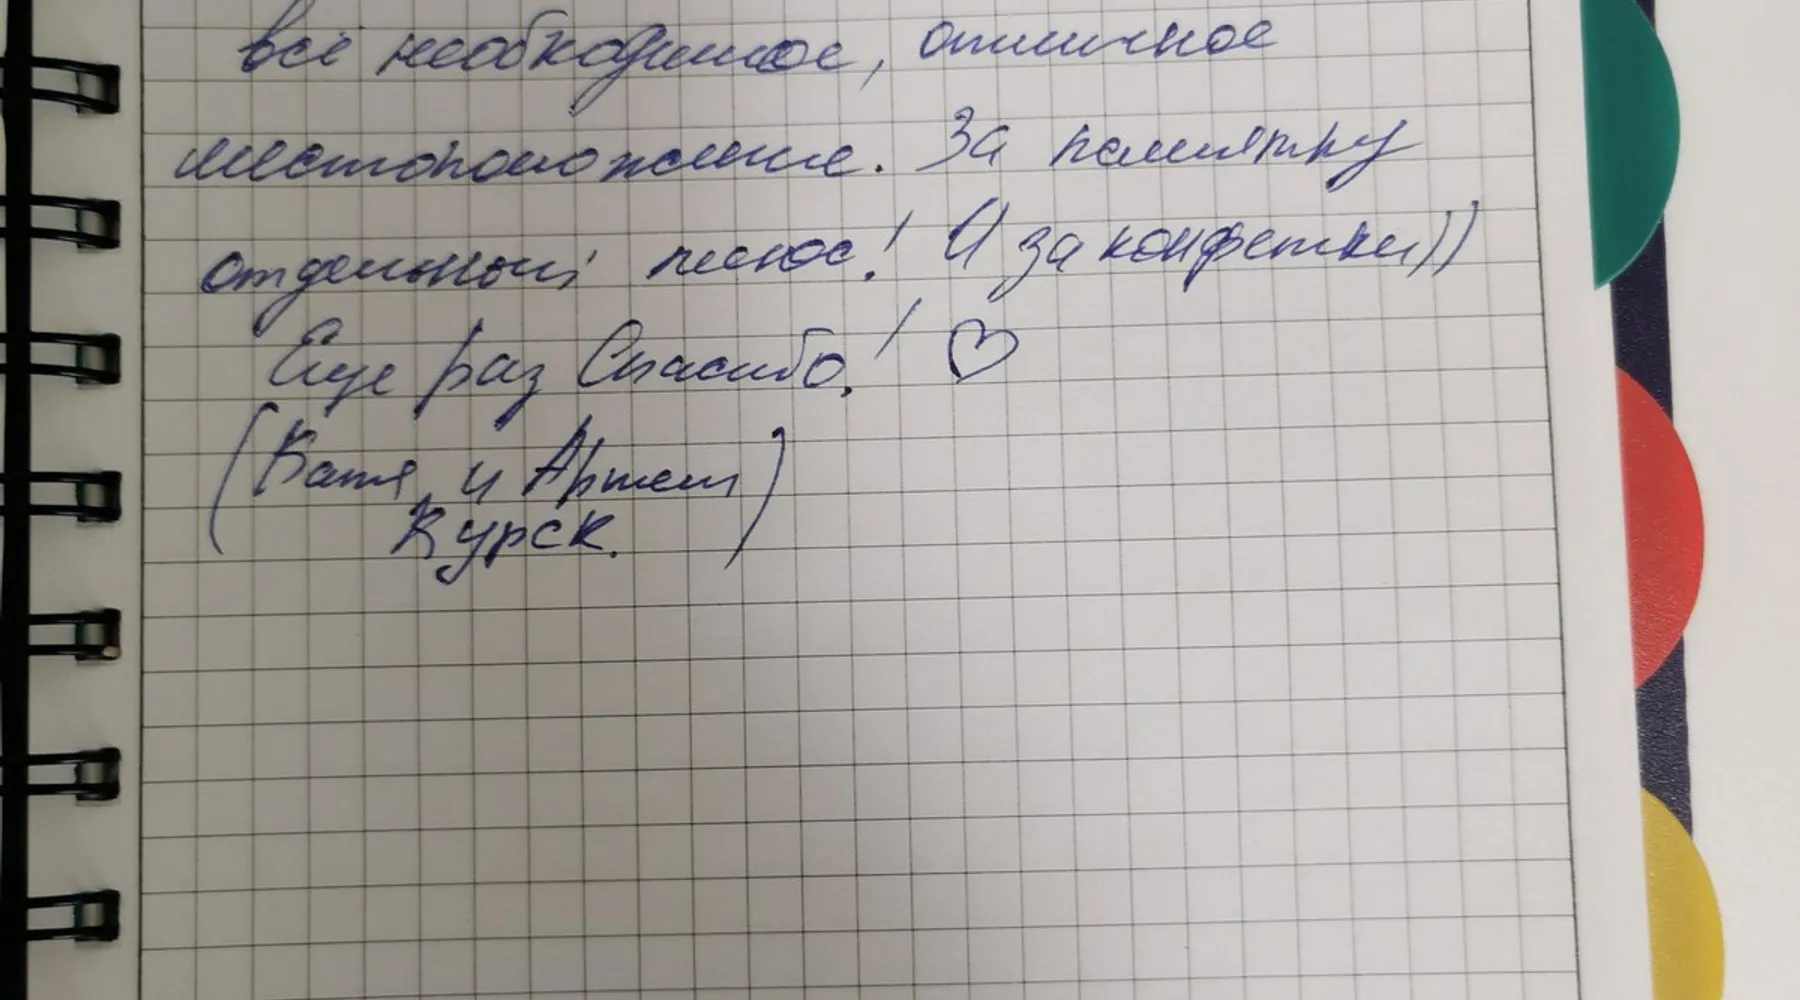 всё необходимое, отличное
местоположение. За памятку
отдельный плюс! И за конфетки))
Еще раз Спасибо! ♡
(Катя и Артем
Курск.)